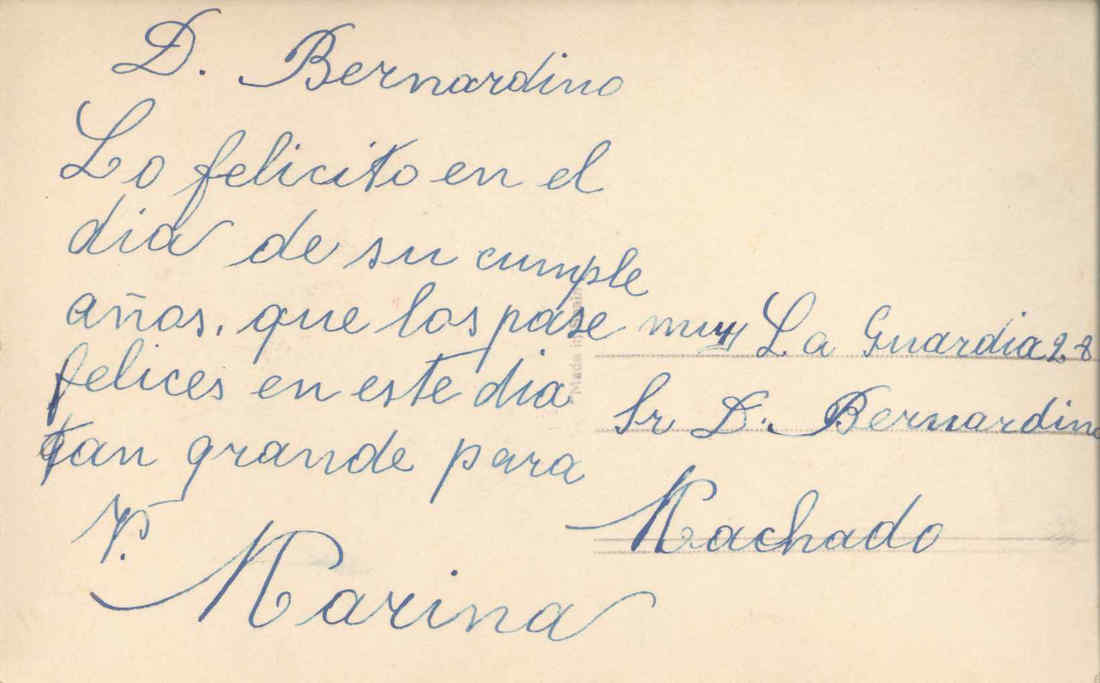 D. Bernardino
Lo felicito en el
dia de su cumple
años, que los pase muy
felices en este dia
tan grande para
V.
Marina
La Guardia 28
Sr D. Bernardino
Machado
Made in